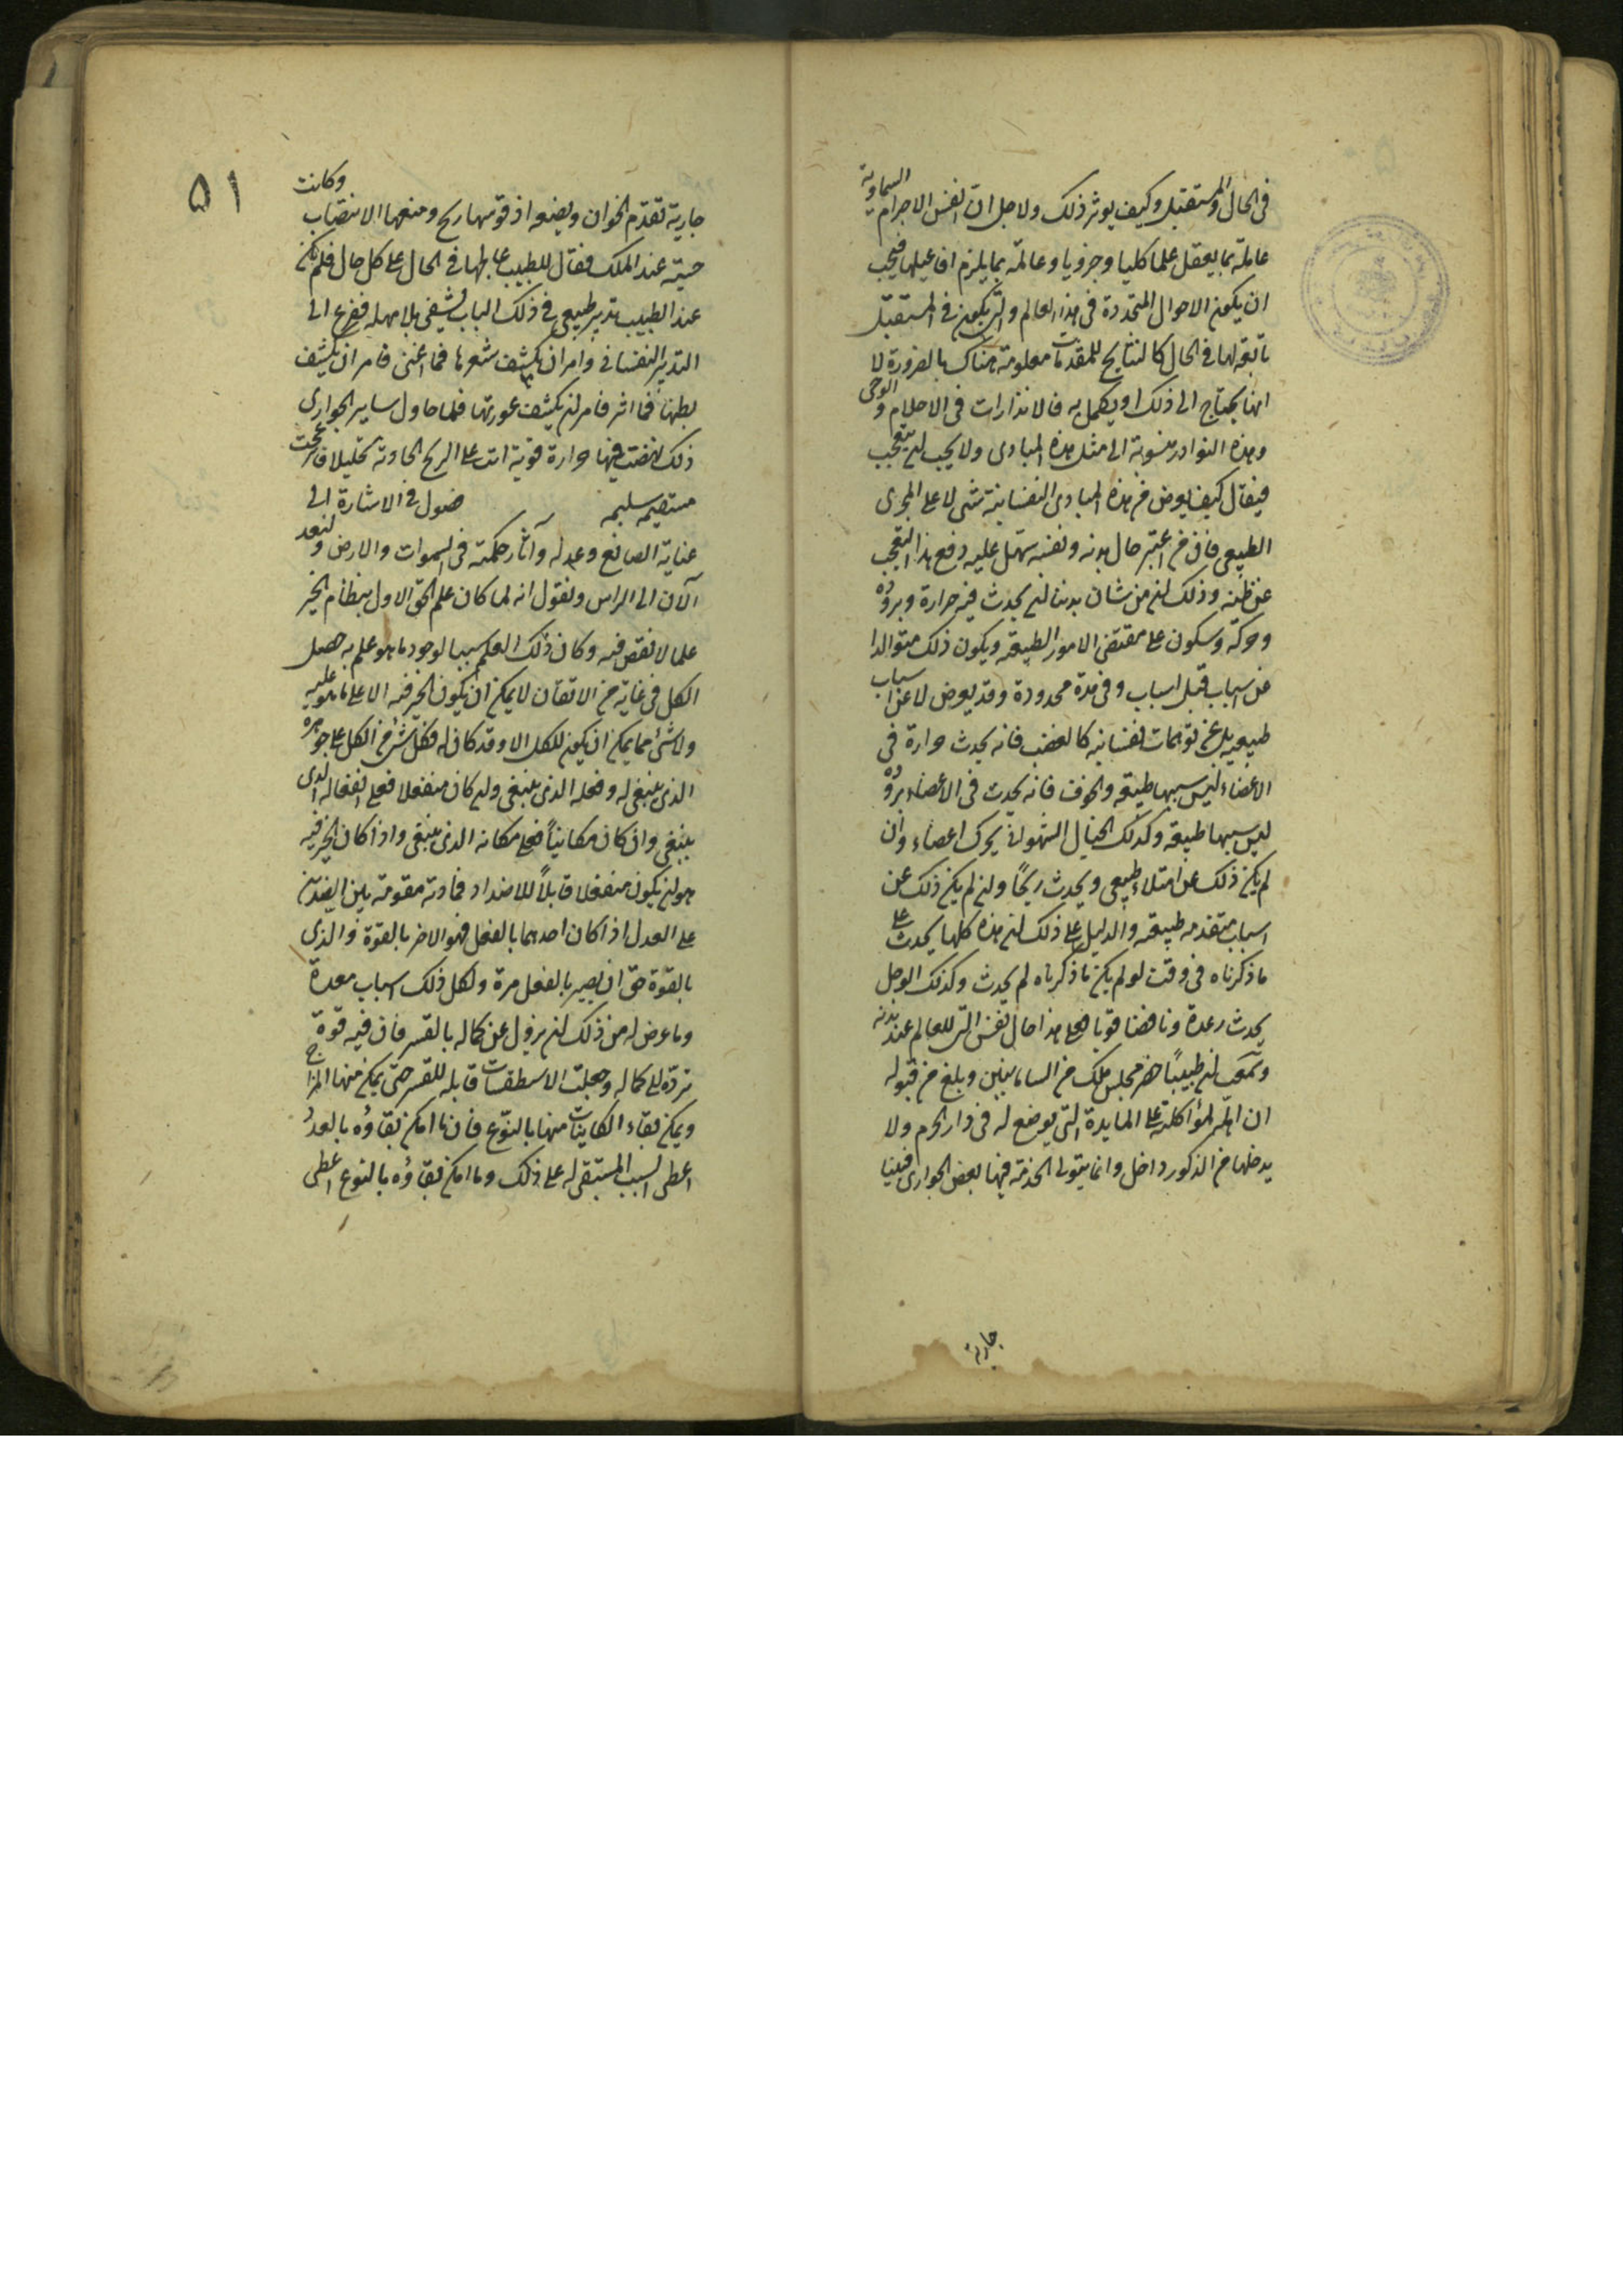 فى الحال والمستقبل وكيف يوثر ذلك ولاجل ان انفس الاجرام السماوية
عاملة بما يعقل علما كليا وجزويا وعالمة بما يلزم افاعيلها فيجب
ان يكون الاحوال المتجددة فى هذا العالم والتى يكون فى المستقبل
تابعة لها فى الحال كالنتايج للمقدمات معلومة هناك بالضرورة لا
انها يحتاج الى ذلك او يكمل به فالانذارات فى الاحلام والوحى
وهذه النوادر منسوبة الى مثل هذه المبادى ولا يجب ان يتعجب
فيقال كيف يعرض من هذه المبادى النفسانية شى لا على المجرى
الطبيعى فان من اعتبر حال بدنه ونفسه سهل عليه دفع هذا التعجب
عن ظنه وذلك ان من شان بدننا ان يحدث فيه حرارة وبرودة
وحركة وسكون على مقتضى الامور الطبيعة ويكون ذلك متوالدا
عن اسباب قبل اسباب وفى مدة محدودة وقد يعرض لا عن اسباب
طبيعيه بل عن توهمات نفسانيه كالغضب فانه يحدث حرارة فى
الاعضاء ليس سببها طبيعة والخوف فانه يحدث فى الاعضاء برودة
ليس سببها طبيعة وكذلك الخيال الشهوانى يحرك اعضاء وان
لم يكن ذلك عن امتلاء طبيعى ويحدث ريحًا وان لم يكن ذلك عن
اسباب متقدمه طبيعة والدليل على ذلك ان هذه كلها يحدث على
ما ذكرناه فى وقت لو لم يكن ما ذكرناه لم يحدث وكذلك الوجل
يحدث رعدة ونافضا قويا فعلى هذا حال نفس التى للعالم عند بدنه
وسمعت ان طبيبًا حضر مجلس ملك من السامانيين وبلغ من قبوله
ان اهله لمؤاكلته على المايدة التى يوضع له فى دار الحرم ولا
يدخلها من الذكور داخل وانما يتولى الخدمة فيها بعض الجوارى فبينا
جارية
٥١
جارية تقدم الخوان ويضعه اذ قوسها ريح ومنعها الانتصاب وكانت
حسنة عند الملك فقال للطبيب عالجها فى الحال على كل حال فلم يكن
عند الطبيب تدبير طبيعى فى ذلك الباب يشفى بلا مهله ففزع الى
التدبير النفسانى وامر ان يكشف شعرها فما اغنى فامر ان يكشف
بطنها فما اثر فامر ان يكشف عورتها فلما حاول ساير الجوارى
ذلك نهضت فيها حرارة قوية اتت على الريح الحادثه تحليلا فانزعجت
مستقيمه سليمه فصول فى الاشارة الى
عناية الصانع وعدله وآثار حكمته فى السموات والارض ولنعد
الآن الى الراس ونقول انه لما كان علم الحق الاول بنظام الخير
علما لا نقص فيه وكان ذلك العلم سببا لوجود ما هو علم به حصل
الكل فى غاية من الاتقان لا يمكن ان يكون الخير فيه الا على ما هو عليه
ولا شئ مما يمكن ان يكون للكل الا وقد كان له فكل شئ من الكل على جوهره
الذى ينبغى له وفعله الذى ينبغى وان كان منفعلا فعلى انفعاله الذى
ينبغى وان كان مكانيًا فعلى مكانه الذى ينبغى واذا كان الخير فيه
هو ان يكون منفعلا قابلًا للاضداد فمادته مقومة بين الضدين
على العدل اذا كان احدهما بالفعل فهو الاخر بالقوة والذى
بالقوة حق ان يصير بالفعل مرة ولكل ذلك اسباب معدة
وما عرض له من ذلك ان يزول عن كماله بالقسر فان فيه قوة
تردّه الى كماله وجعلت الاسطقسات قابله للقسر حتى يمكن منها المزاج
ويمكن بقاء الكاينات منها بالنوع فان ما امكن بقاؤه بالعدد
اعطى السبب المستبقى له على ذلك وما امكن بقاؤه بالنوع اعطى